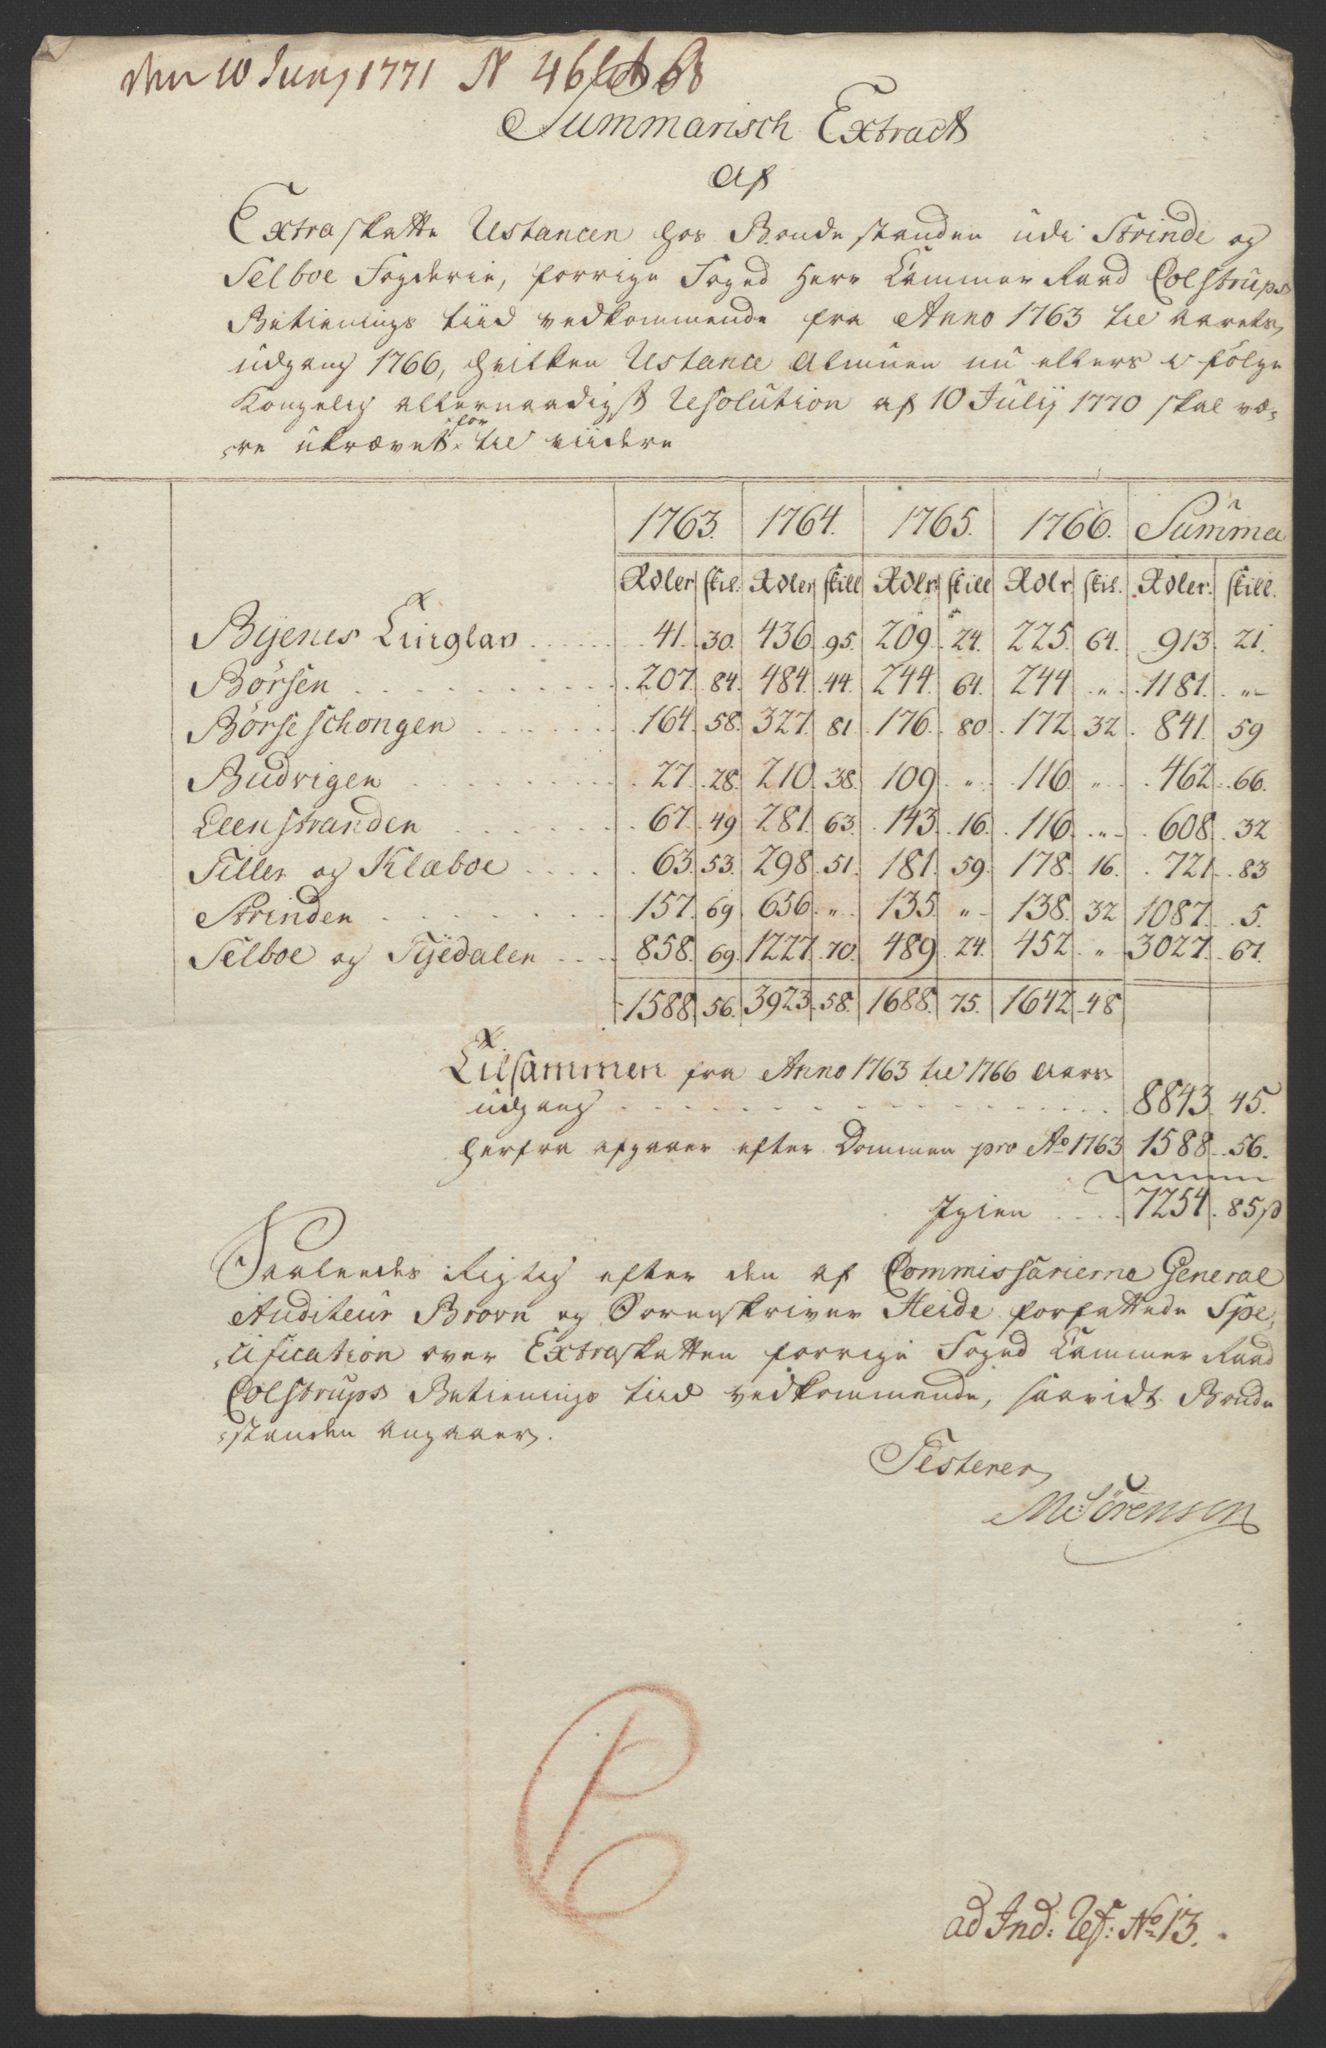 den 10 Junj 1771 N 46
Summarisch Extract
Af
Extraskatte Restancen hos Bondestanden udi Strinde og
Selboe Fogderie, forrige Foged Herr Cammer Raad Colstrups
Betienings tiid vedkommende fra Anno 1763 til aarets
udgang 1766, hvilken Restance Almuen nu ellers i følge
Kongelig allernaadigst Resolution af 10 Julij 1770 skal væ-
-re ukrævet for til viidere
1763. 1764. 1765. 1766. Summa
Rdler skil. Rdler skill Rdlr skill Rdlr skil. Rdler. skill.
Byenes Tinglav 41. 30. 436. 95. 209. 24. 225. 64. 913. 21.
Børsen 207. 84. 484. 44. 244. 64. 244 „ 1181. „
Børseschongen 164. 58. 327. 81. 176. 80. 172. 32. 841. 59
Budvigen 27. 28. 210. 38. 109 „ 116 „ 462. 66.
Leenstranden 67. 49 281. 63. 143. 16. 116. „ 608. 32
Tiller og Klæboe 63. 53. 298. 51. 181. 59. 178. 16. 721. 83
Strinden 157. 69. 656. „ 135. „ 138. 32 1087. 5.
Selboe og Tyedalen 858. 69. 1227. 70. 489. 24. 452 „ 3027. 67.
1588. 56. 3923. 58. 1688. 75. 1642. 48
Tilsammen fra Anno 1763 til 1766 Aars
udgang 8843. 45.
Herfra afgaaer efter Dommen pro Ao 1763 1588. 56.
Igien 7254. 85 ß
Saaledes Rigtig efter den af Commissarierne General
Auditeur Brovn og Sorenskriver Heide forfattede Spe-
-cification over Extraskatten forrige Foged Cammer Raad
Colstrups Betienings tiid vedkommende, saavidt Bonde
-standen angaaer.
Testerer
M: Sörensen
ad Ind: Ref: No 13.